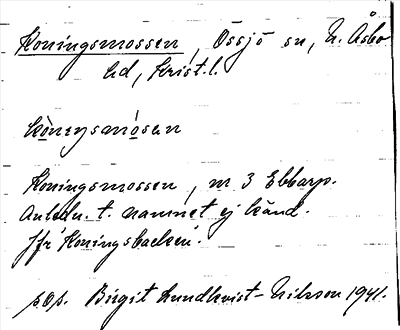 Koningsmossen, Össjö sn, N. Åsbo
hd, Krist. l.
kòneŋsmósan
Koningsmossen, nr 3 Ebbarp.
Anledn. t. namnet ej känd.
Jfr "Koningsbacken".
Birgit Lundkvist-Nilsson 1941.